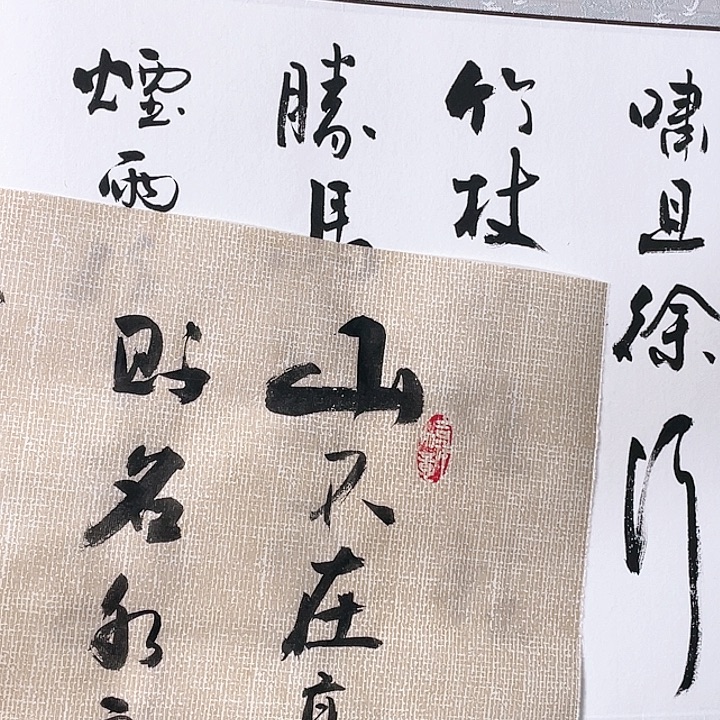 嘯且徐行
竹杖
勝馬
煙雨
山不在高
則名水